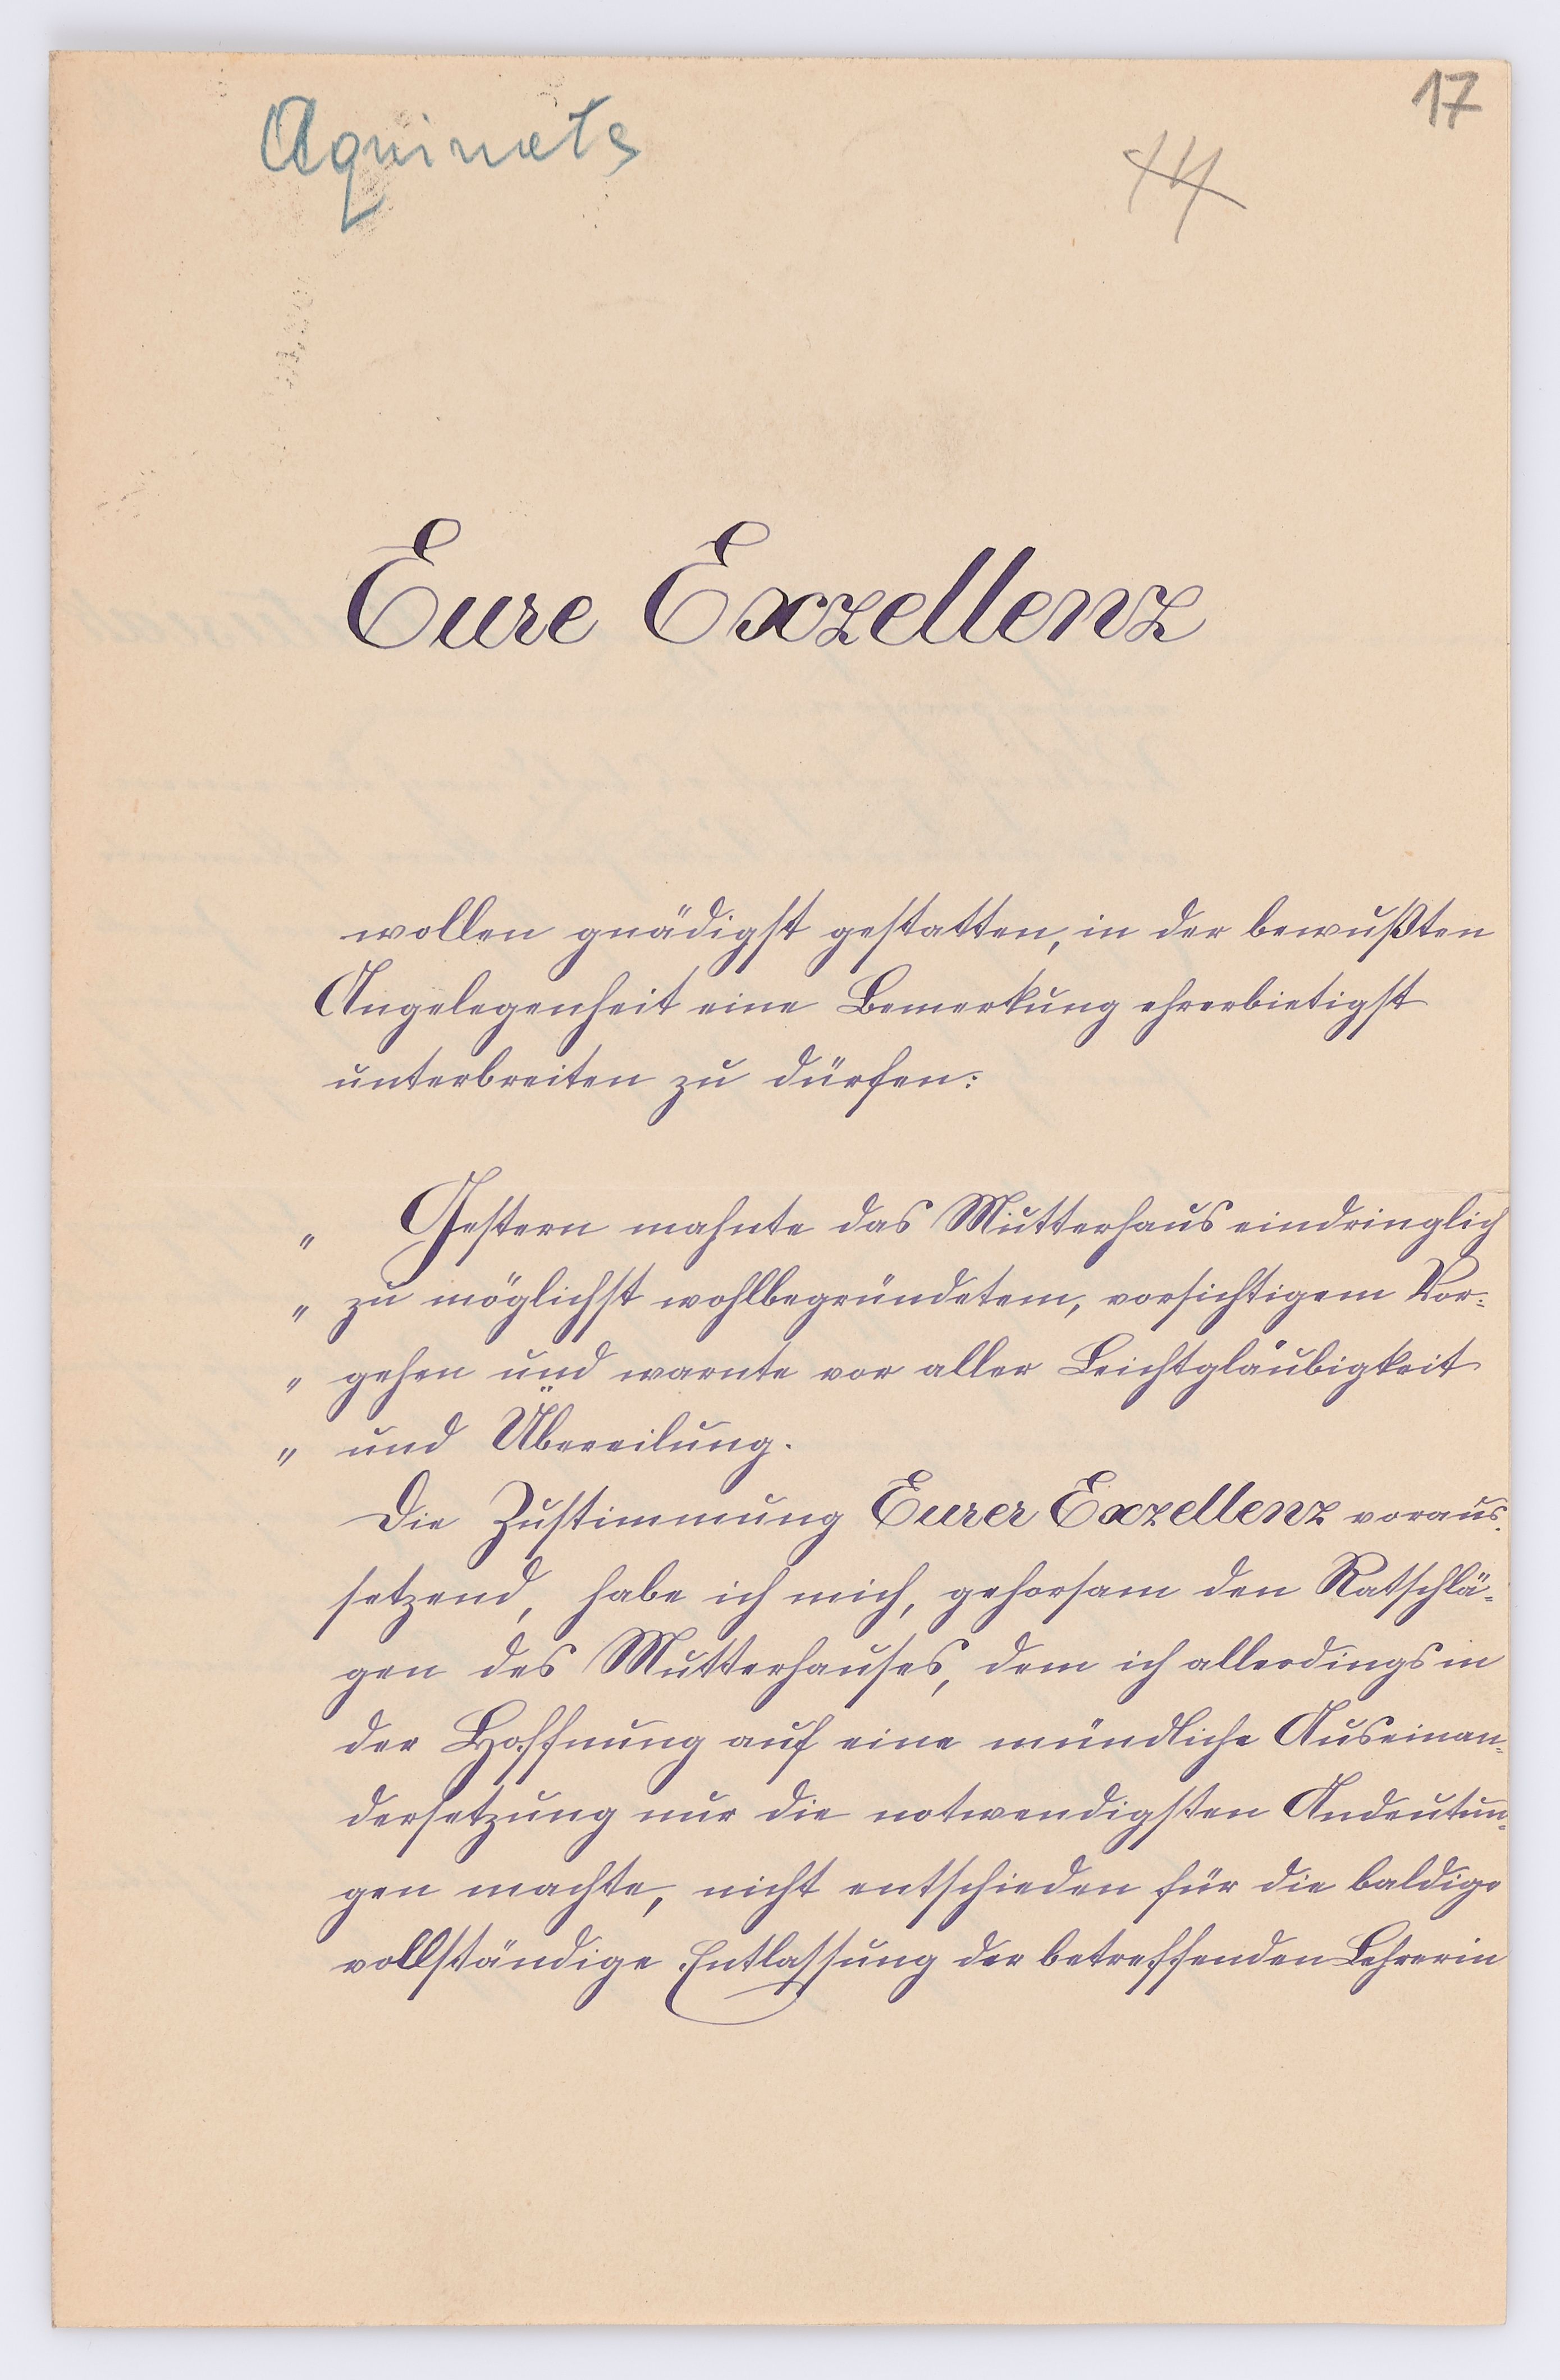 17
Aquinata
14
Eure Exzellenz
wollen gnädigst gestatten, in der bewußten
Angelegenheit eine Bemerkung ehrerbietigst
unterbreiten zu dürfen:
„ Gestern mahnte das Mutterhaus eindringlich
„ zu möglichst wohlbegründetem, vorsichtigem Vor-
„ gehen und warnte vor aller Leichtgläubigkeit
„ und Übereilung.
Die Zustimmung Eurer Exzellenz voraus-
setzend, habe ich mich, gehorsam den Ratschlä-
gen des Mutterhauses, dem ich allerdings in
der Hoffnung auf eine mündliche Auseinan-
dersetzung nur die notwendigsten Andeutun-
gen machte, nicht entschieden für die baldige
vollständige Entlassung der betreffenden Lehrerin